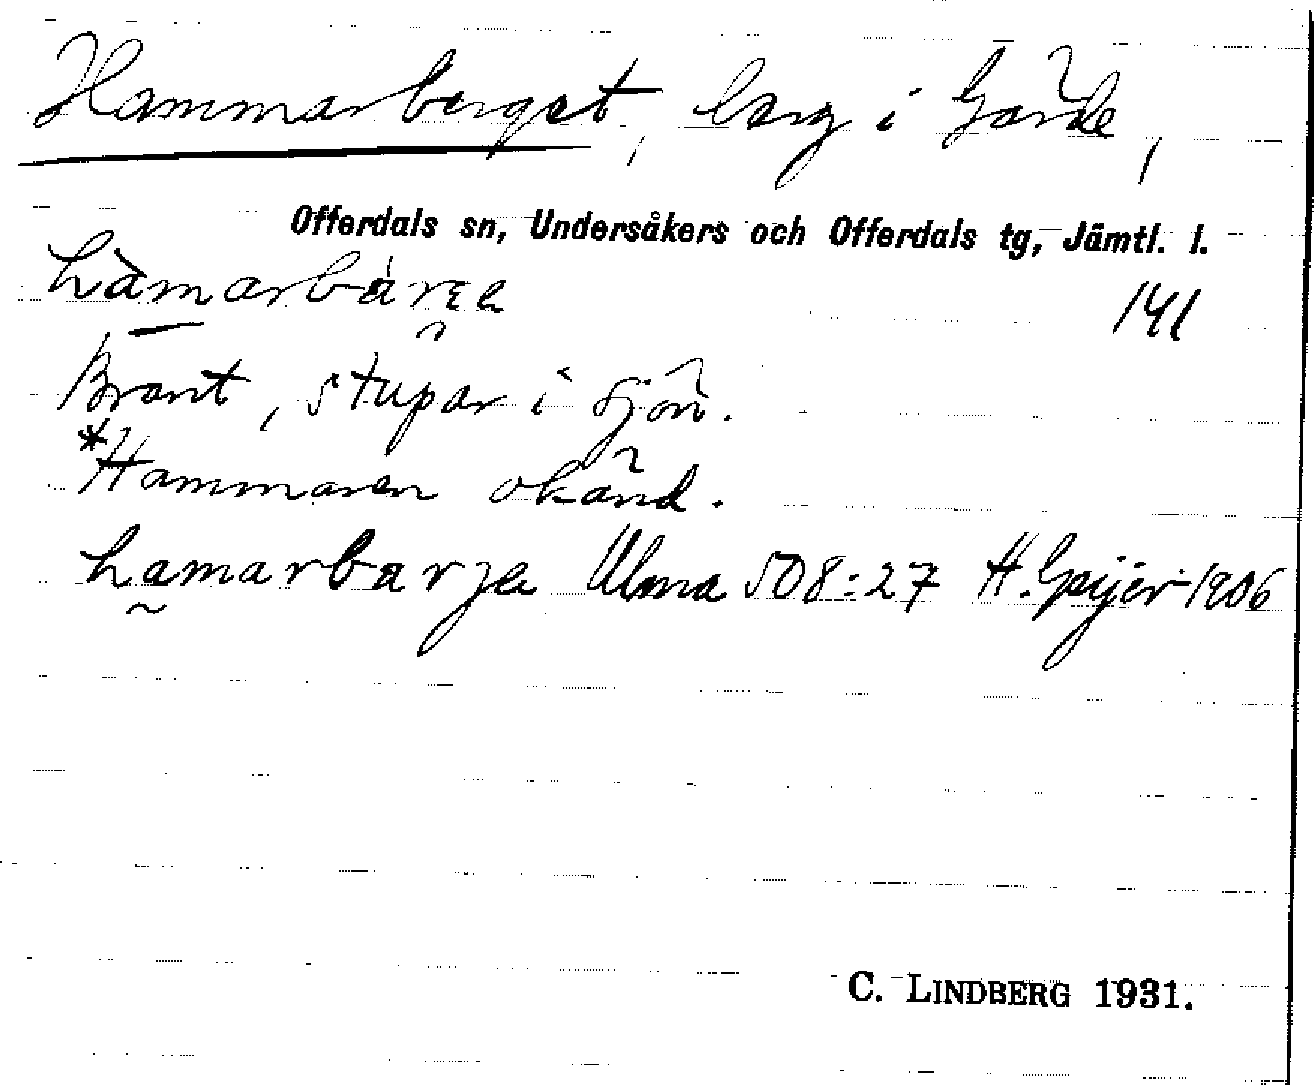 Hammarberget, berg i Gärde,
Offerdals sn, Undersåkers och Offerdals tg, Jämtl. l.
141
Brant, stupar i sjön.
*Hammaren okänd.
hamarbarja Ulma 508:27 H. Geijer 1906
C. LINDBERG 1931.